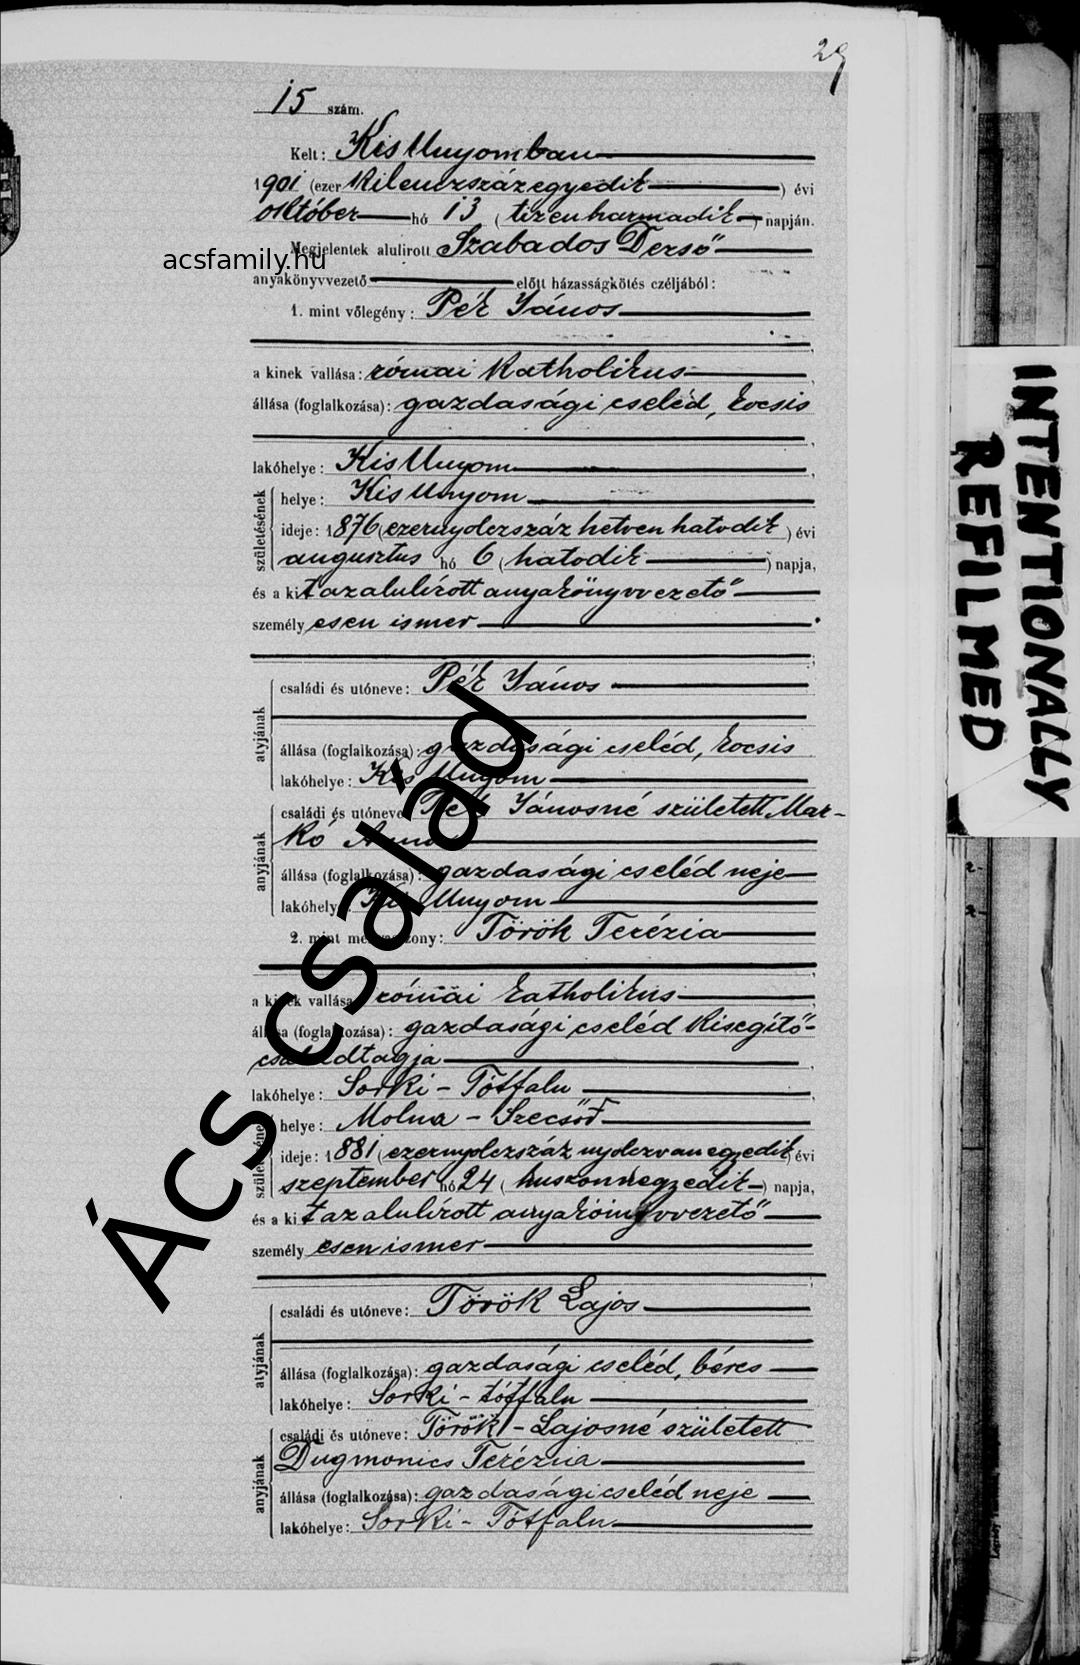 29
15 szám.
Kelt: Kis Unyomban
1901 (ezer kilenczszázegyedik) évi
október hó 13 (tizenharmadik) napján.
Megjelentek alulirott Szabados Dersö
acsfamily.hu
anyakönyvvezető előtt házasságkötés czéljából:
1. mint vőlegény: Pék János
a kinek vallása: római katholikus
állása (foglalkozása): gazdasági cseléd, kocsis
lakóhelye: Kis Unyom
születésének
helye: Kis Unyom
ideje: 1876 (ezernyolczszáz hetvenhatodik) évi
augusztus hó 6 (hatodik) napja,
és a kit az alulírott anyakönyvvezető
személyesen ismer
atyjának
családi és utóneve: Pék János
állása (foglalkozása): gazdasági cseléd, kocsis
lakóhelye: Kis Unyom
anyjának
családi és utóneve: Pék Jánosné született Mar-
kó Anna
állása (foglalkozása): gazdasági cseléd neje
lakóhelye: Kis Unyom
2. mint menyasszony: Török Terézia
a kinek vallása: római katholikus
állása (foglalkozása): gazdasági cseléd kisegítő
családtagja
lakóhelye: Sorki-Tótfalu
születésének
helye: Molna-Szecsőd
ideje: 1881 (ezernyolczszáz nyolczvanegyedik) évi
szeptember hó 24 (huszonnegyedik) napja,
és a kit az alulírott anyakönyvvezető
személyesen ismer
atyjának
családi és utóneve: Török Lajos
állása (foglalkozása): gazdasági cseléd, béres
lakóhelye: Sorki-tótfalu
anyjának
családi és utóneve: Török-Lajosné született
Dugmonics Terézia
állása (foglalkozása): gazdasági cseléd neje
lakóhelye: Sorki-Tótfalu
Ács család
INTENTIONALLY
REFILMED